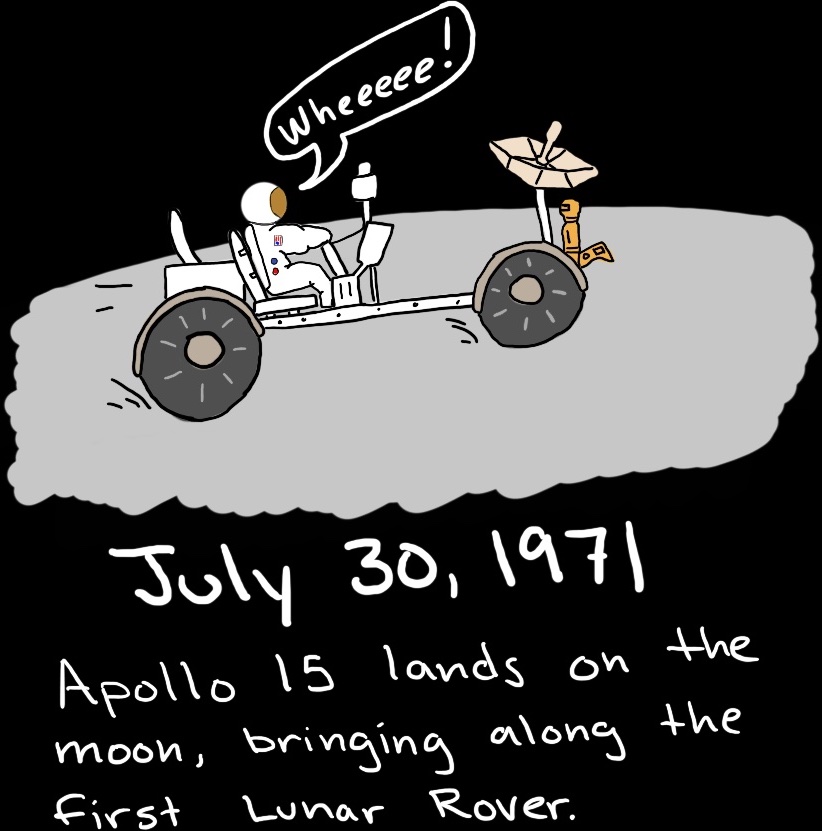 Wheeeee!
July 30, 1971
Apollo 15 lands on the
moon, bringing along the
first Lunar Rover.